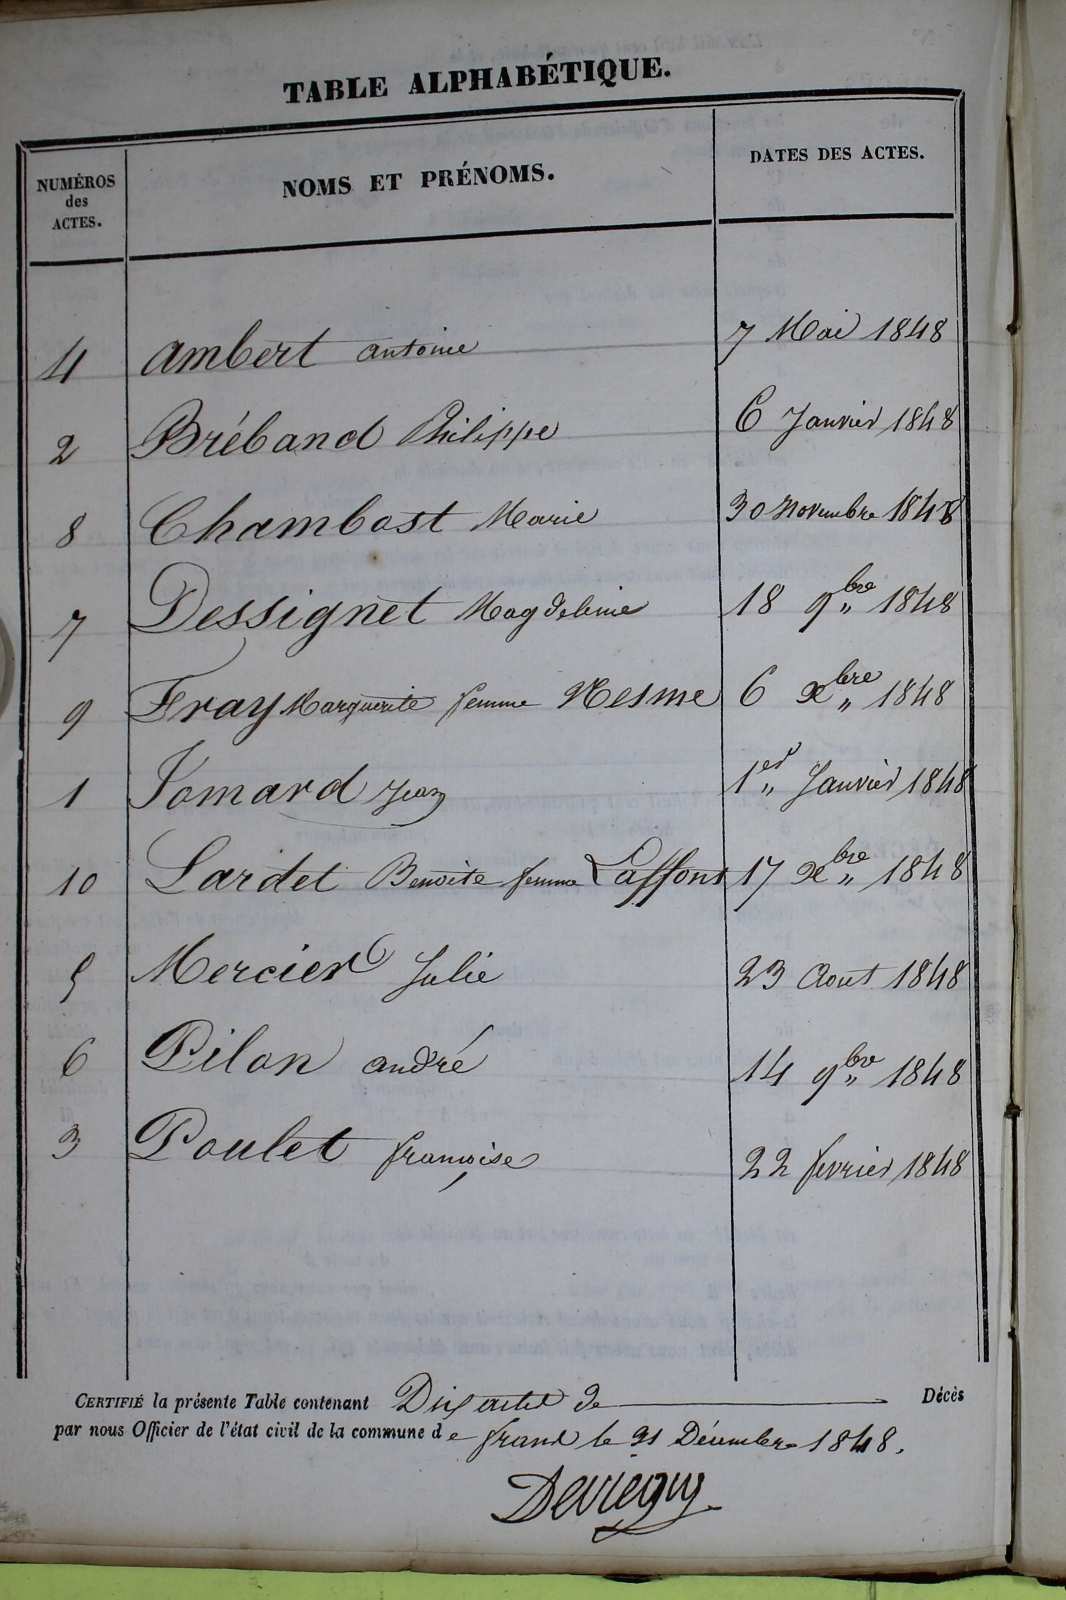 TABLE ALPHABÉTIQUE.
NUMÉROS des ACTES. NOMS ET PRÉNOMS. DATES DES ACTES.
4 Ambert antoine 7 Mai 1848
2 Bréband Philippe 6 Janvier 1848
8 Chambost Marie 30 Novembre 1848
7 Dessignet Magdeleine 18 9bre 1848
9 Fray Marguerite femme Nesme 6 xbre 1848
1 Jomard Jean 1er Janvier 1848
10 Lardet Benoite femme Laffont 17 xbre 1848
5 Mercier Julie 23 Aout 1848
6 Pilon andré 14 9bre 1848
3 Poulet françoise 22 fevrier 1848
CERTIFIÉ la présente Table contenant Dix actes de Décès
par nous Officier de l'état civil de la commune de le 31 Décembre 1848.